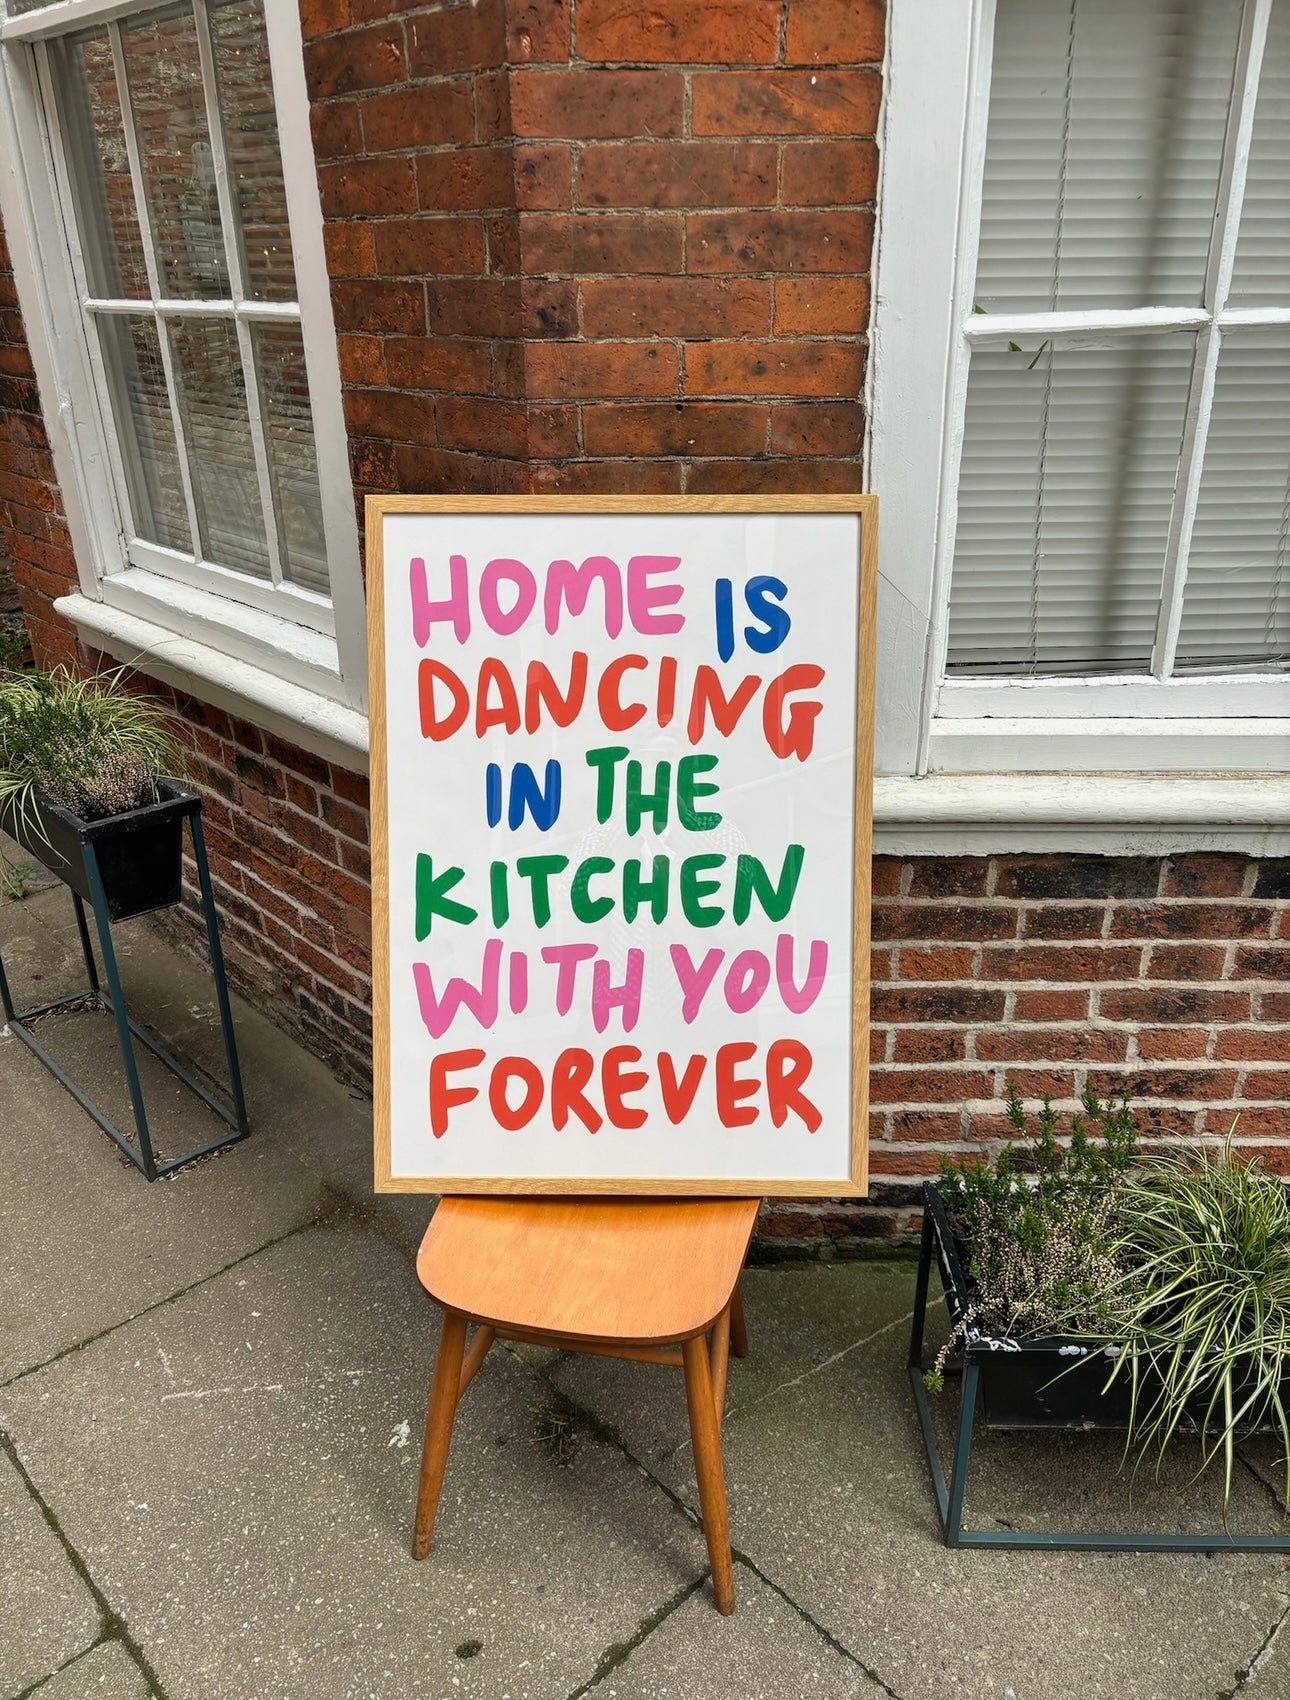 HOME IS
DANCING
IN THE
KITCHEN
WITH YOU
FOREVER